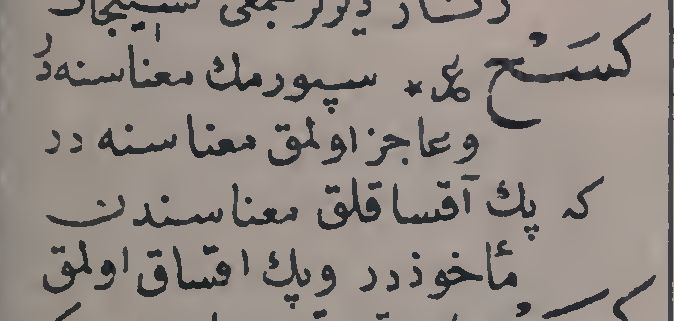 كَسْح سپورمك معناسنه در
وعاجز اولمق معناسنه در
كه پك آقساقلق معناسندن
مأخوذدر وپك اقساق اولمق